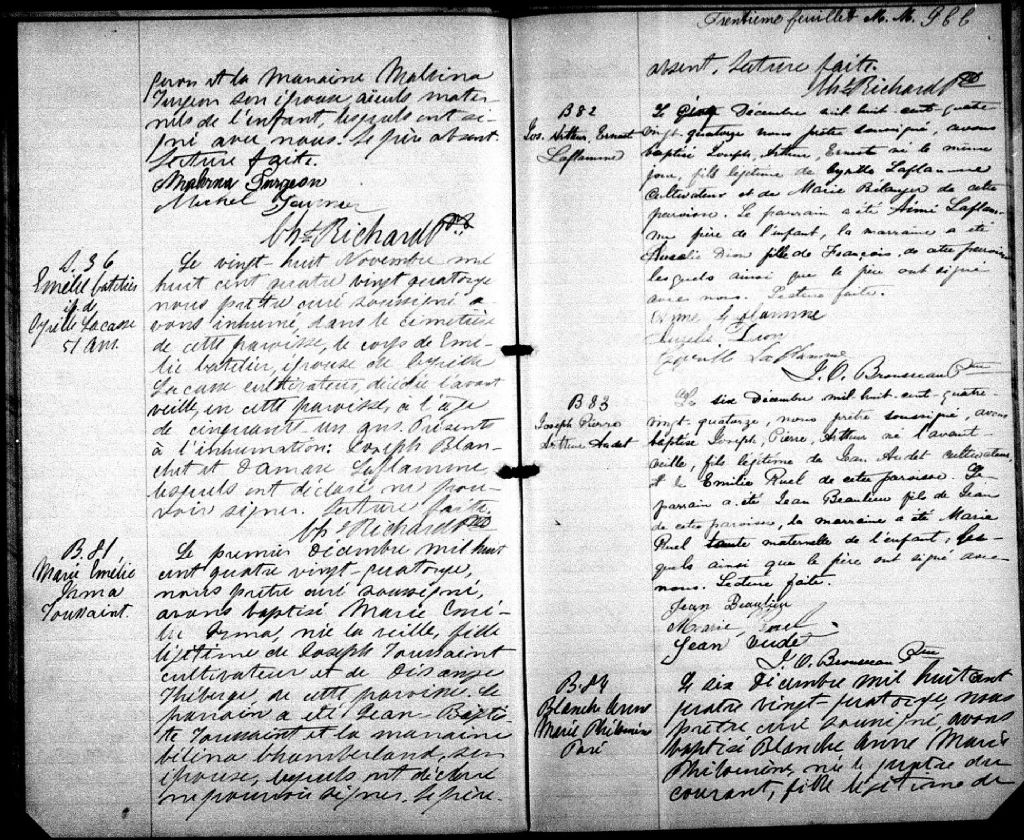 geon et la marraine Malvina
Turgeon son épouse, aïeuls mater-
nels de l'enfant, lesquels ont si-
gné avec nous. Le père absent.
Lecture faite.
Malvina Turgeon
Michel
Chs Richard Ptre
S. 36
Emélie
ép. de
Cyrille Lacasse
51 Ans.
Le vingt-huit Novembre mil
huit cent quatre vingt quatorze
nous prêtre curé soussigné a-
vons inhumé, dans le cimetière
de cette paroisse, le corps de Emé-
lie épouse de Cyrille
Lacasse cultivateur, décédée l'avant
veille, en cette paroisse, à l'âge
de cinquante un ans. Présents
à l'inhumation: Joseph Blan-
chet et Damase Laflamme,
lesquels ont déclaré ne pou-
voir signer. Lecture faite.
Chs Richard Ptre
B. 81
Marie Emélie
Irma
Toussaint.
Le premier Décembre mil huit
cent quatre vingt-quatorze,
nous prêtre curé soussigné,
avons baptisé Marie Emé-
lie Irma, née la veille, fille
légitime de Joseph Toussaint
cultivateur et de
Théberge de cette paroisse. Le
parrain a été Jean Baptis-
te Toussaint et la marraine
Célina Chamberland, son
épouse, lesquels ont déclaré
ne pouvoir signer. Le père
Trentième feuillet M. M.
absent. Lecture faite.
Chs Richard Ptre
B 82
Jos. Arthur, Ernest
Laflamme
Le cinq Décembre mil huit cent-quatre-
vingt-quatorze nous prêtre soussigné, avons
baptisé Joseph, Arthur, Ernest né le même
jour, fils légitime de Cyrille Laflamme
cultivateur et de Marie Bélanger de cette
paroisse. Le parrain a été Aimé Laflam-
me père de l'enfant, la marraine a été
Auzélie Dion fille de François, de cette paroisse
lesquels ainsi que le père ont signé
avec nous. Lecture faite.
Aimé Laflamme
Dion
Laflamme
J. O. Brousseau Ptre
B 83
Joseph Pierre
Arthur Audet
Le six Décembre mil huit-cent-quatre-
vingt-quatorze, nous prêtre soussigné, avons
baptisé Joseph, Pierre, Arthur né l'avant-
veille, fils légitime de Jean Audet cultivateur,
et de Emilie Ruel de cette paroisse. Le
parrain a été Jean Beaulieu fils de Jean
de cette paroisse, la marraine a été Marie
Ruel tante maternelle de l'enfant, les-
quels ainsi que le père ont signé avec
nous. Lecture faite.
Jean Beaulieu
Marie Ruel
Jean Audet
J. O. Brousseau Ptre
B. 84
Blanche Anne
Marie Philomène
Paré
Le six Décembre mil huit cent
quatre vingt-quatorze, nous
prêtre curé soussigné, avons
baptisé Blanche Anne Marie
Philomène, née le quatre du
courant, fille légitime de